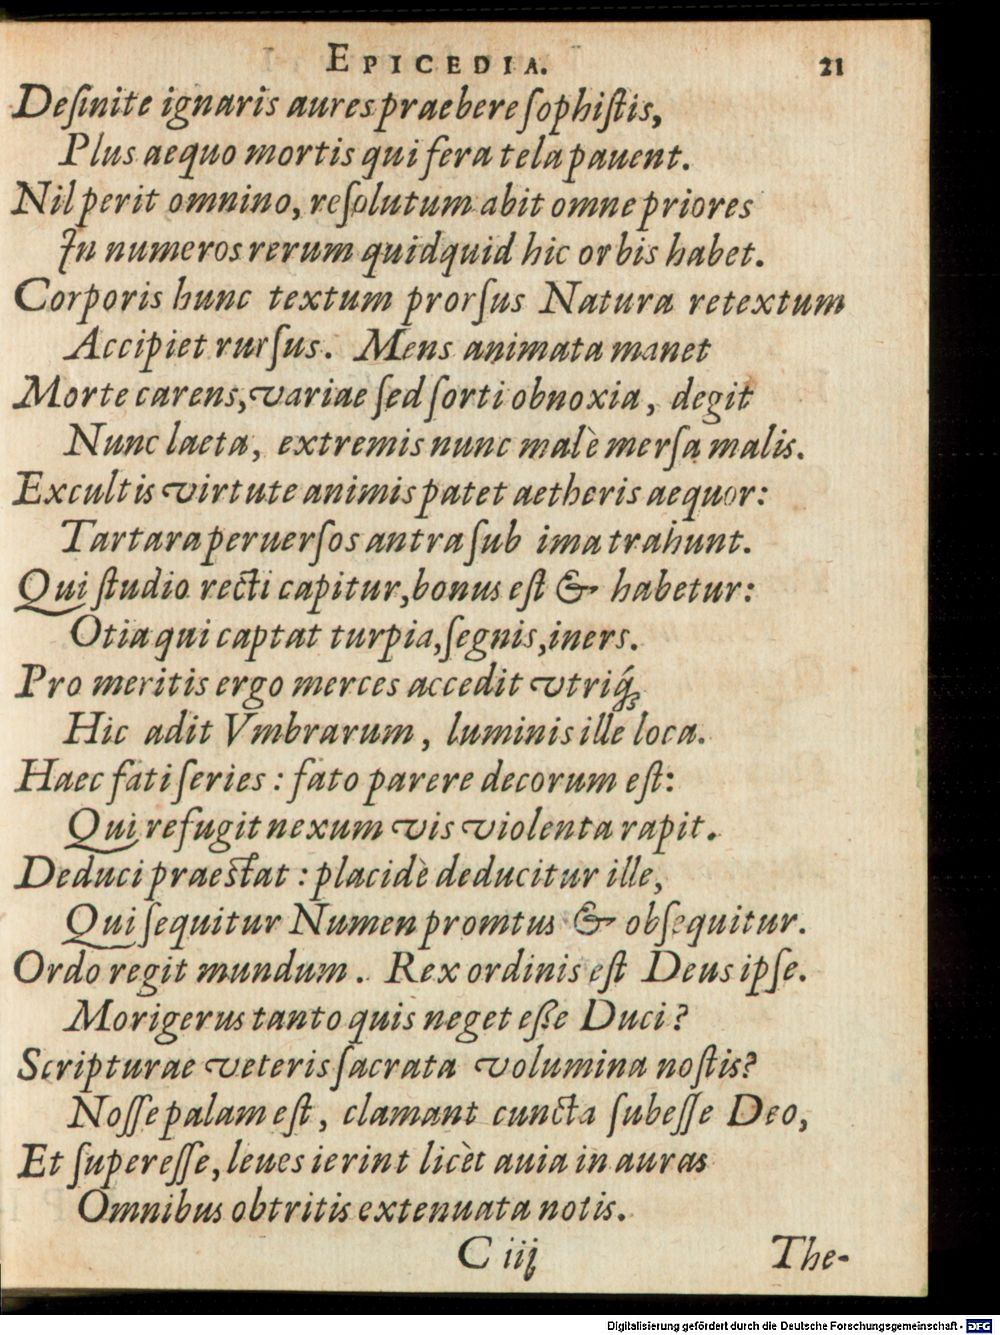 EPICEDIA. 21
Deſinite ignaris aures praebere ſophiſtis,
Plus aequo mortis qui fera tela pauent.
Nil perit omnino, reſolutum abit omne priores
In numeros rerum quidquid hic orbis habet.
Corporis hunc textum prorſus Natura retextum
Accipiet rurſus. Mens animata manet
Morte carens, variae ſed ſorti obnoxia, degit
Nunc laeta, extremis nunc malè merſa malis.
Excultis virtute animis patet aetheris aequor:
Tartara peruerſos antra ſub ima trahunt.
Qui ſtudio recti capitur, bonus eſt & habetur:
Otia qui captat turpia, ſegnis, iners.
Pro meritis ergo merces accedit vtriq́ꝫ
Hic adit Vmbrarum, luminis ille loca.
Haec fati ſeries: fato parere decorum eſt:
Qui refugit nexum vis violenta rapit.
Deduci praeſtat: placidè deducitur ille,
Qui ſequitur Numen promtus & obſequitur.
Ordo regit mundum. Rex ordinis eſt Deus ipſe.
Morigerus tanto quis neget eſſe Duci?
Scripturae veteris ſacrata volumina noſtis?
Noſſe palam eſt, clamant cuncta ſubeſſe Deo,
Et ſupereſſe, leues ierint licèt auia in auras
Omnibus obtritis extenuata notis.
C iij The-
Digitalisierung gefördert durch die Deutsche Forschungsgemeinschaft - DFG